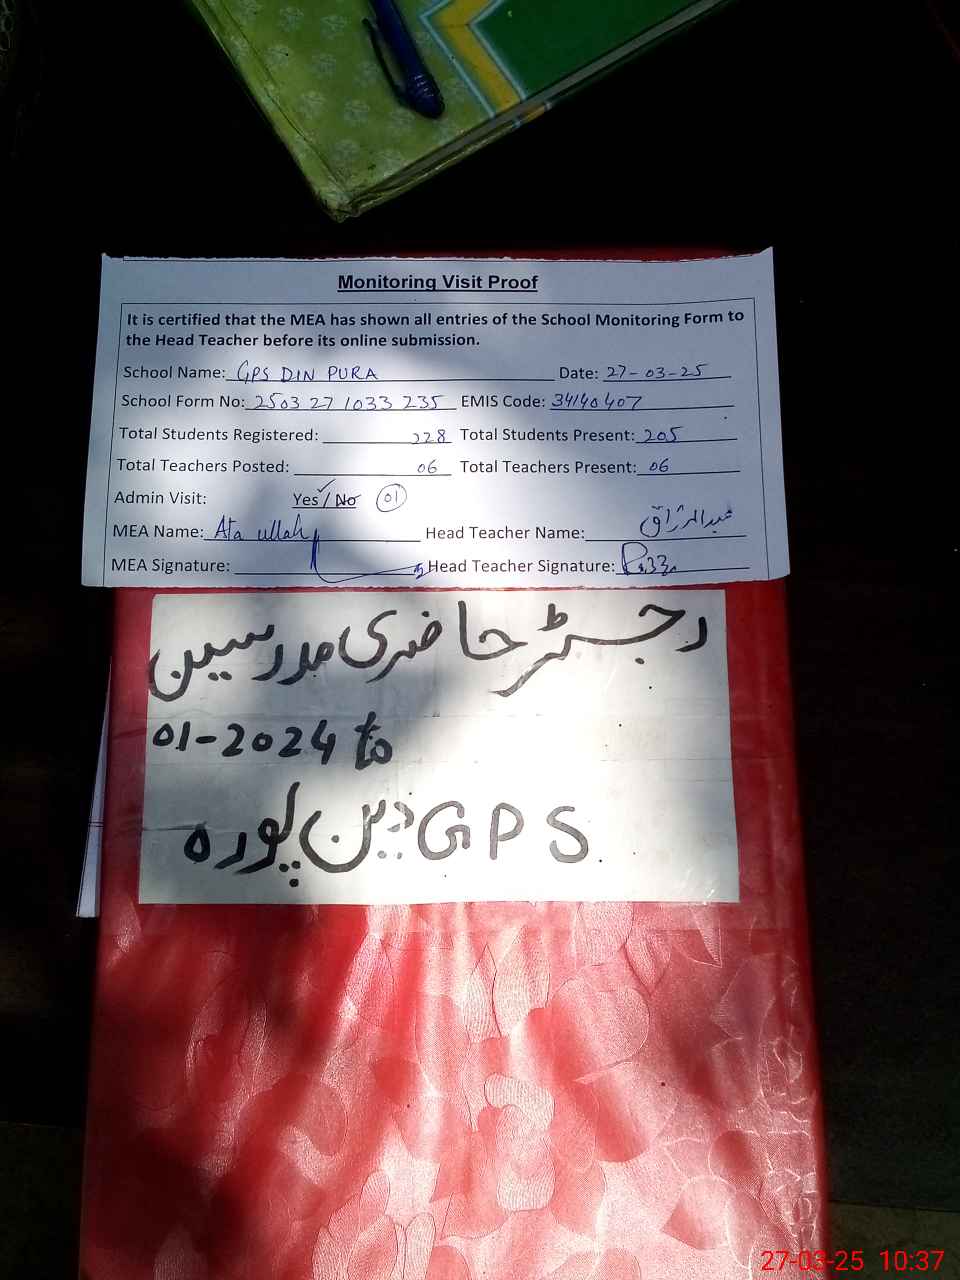 Monitoring Visit Proof
It is certified that the MEA has shown all entries of the School Monitoring Form to
the Head Teacher before its online submission.
School Name: GPS DIN PURA Date: 27-03-25
School Form No: 2503 27 1033 235 EMIS Code: 34140407
Total Students Registered: 228 Total Students Present: 205
Total Teachers Posted: 06 Total Teachers Present: 06
Admin Visit: Yes/No 01
MEA Name: Ata ullah Head Teacher Name: عبدالرزاق
MEA Signature: Head Teacher Signature:
رجسٹر حاضری مدرسین
01-2024 to
GPS دین پورہ
27-03-25 10:37